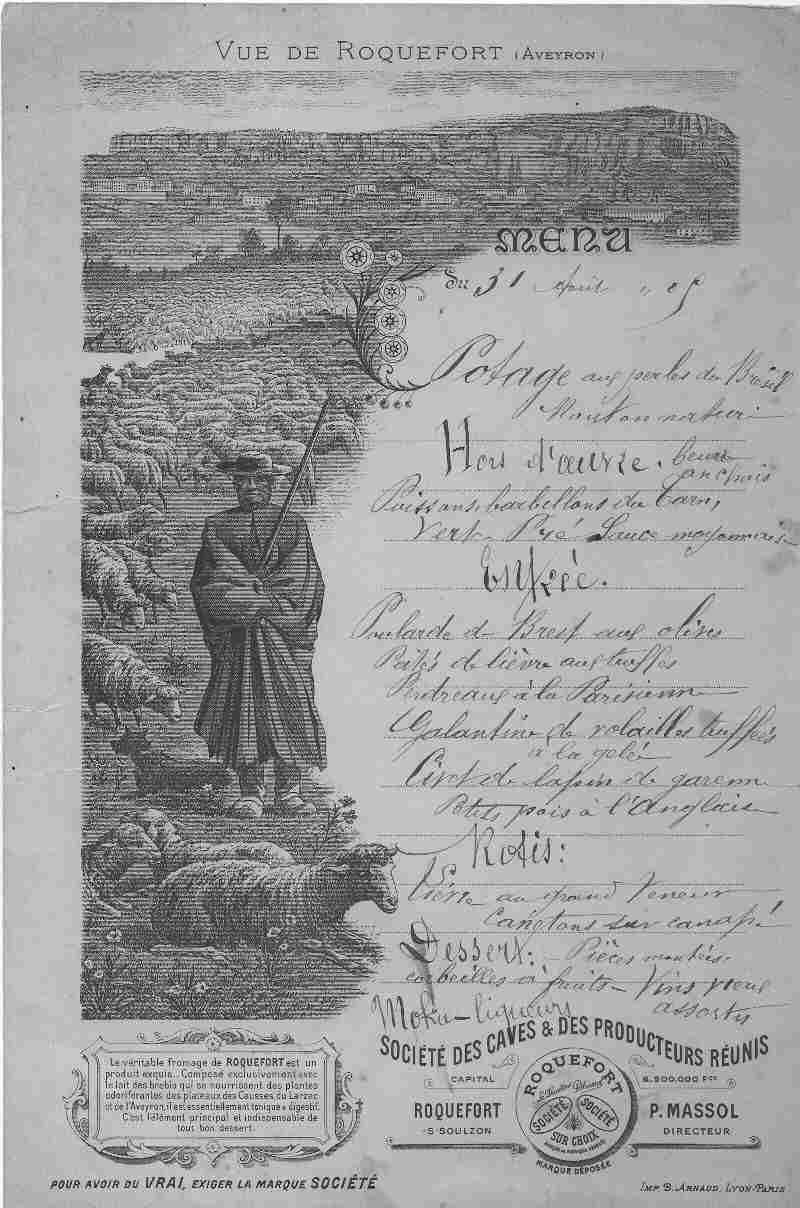 VUE DE ROQUEFORT (AVEYRON)
MENU
du 31 Avril 05
Potage aux perles du Brésil
Mouton nature
Hors d'œuvre. beurre
anchois
Poissons, barbillons du Tarn,
Vert Pré Sauce mayonnaise
Entrée.
Poularde de Brest aux olives
Patés de lièvre aux truffes
Perdreaux à la Parisienne
Galantine de volailles truffées
à la gelée
Civet de lapin de garenne
Petits pois à l'Anglaise
Rotis:
Lièvre au grand Veneur
Canetons sur canapé
Dessert: Pièces montées.
corbeilles à fruits - Vins vieux
assortis
Moka-liqueurs
SOCIÉTÉ DES CAVES & DES PRODUCTEURS RÉUNIS
CAPITAL 6.500.000 Fcs
ROQUEFORT
-S-SOULZON
ROQUEFORT
SOCIÉTÉ SOCIÉTÉ
SUR CHOIX
MARQUE DÉPOSÉE
P. MASSOL
DIRECTEUR
Le véritable fromage de ROQUEFORT est un
produit exquis. Composé exclusivement avec
le lait des brebis qui se nourrissent des plantes
odoriférantes des plateaux des Causses du Larzac
et de l'Aveyron, il est essentiellement tonique & digestif.
C'est l'élément principal et indispensable de
tous bon dessert.
POUR AVOIR DU VRAI, EXIGER LA MARQUE SOCIÉTÉ
IMP. B. ARNAUD, LYON-PARIS